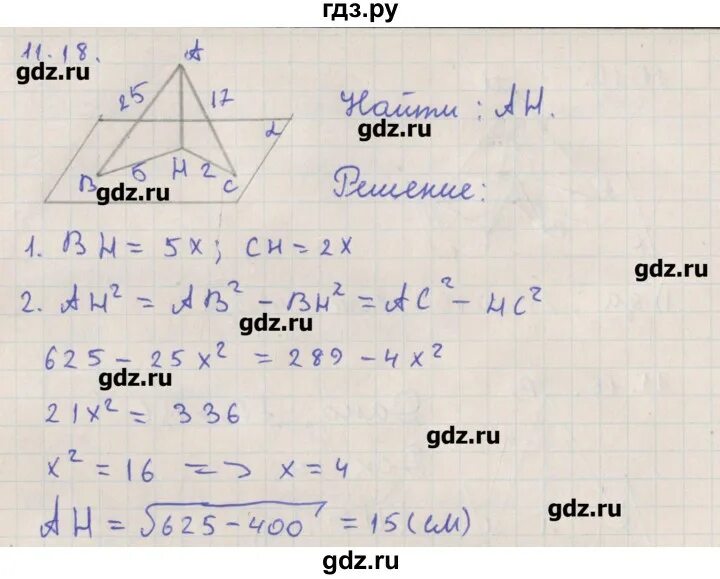 гдз.ру
11.18.
gdz.ru
A
25
17
Найти : AH.
gdz.ru
α
B
6
H
2
C
gdz.ru
Решение:
1. BH = 5x; CH = 2x
gdz.ru
2. AH² = AB² - BH² = AC² - HC²
gdz.ru
625 - 25x² = 289 - 4x²
gdz.ru
21x² = 336
gdz.ru
x² = 16 => x = 4
gdz.ru
AH = √625 - 400 = 15 (см)
gdz.ru